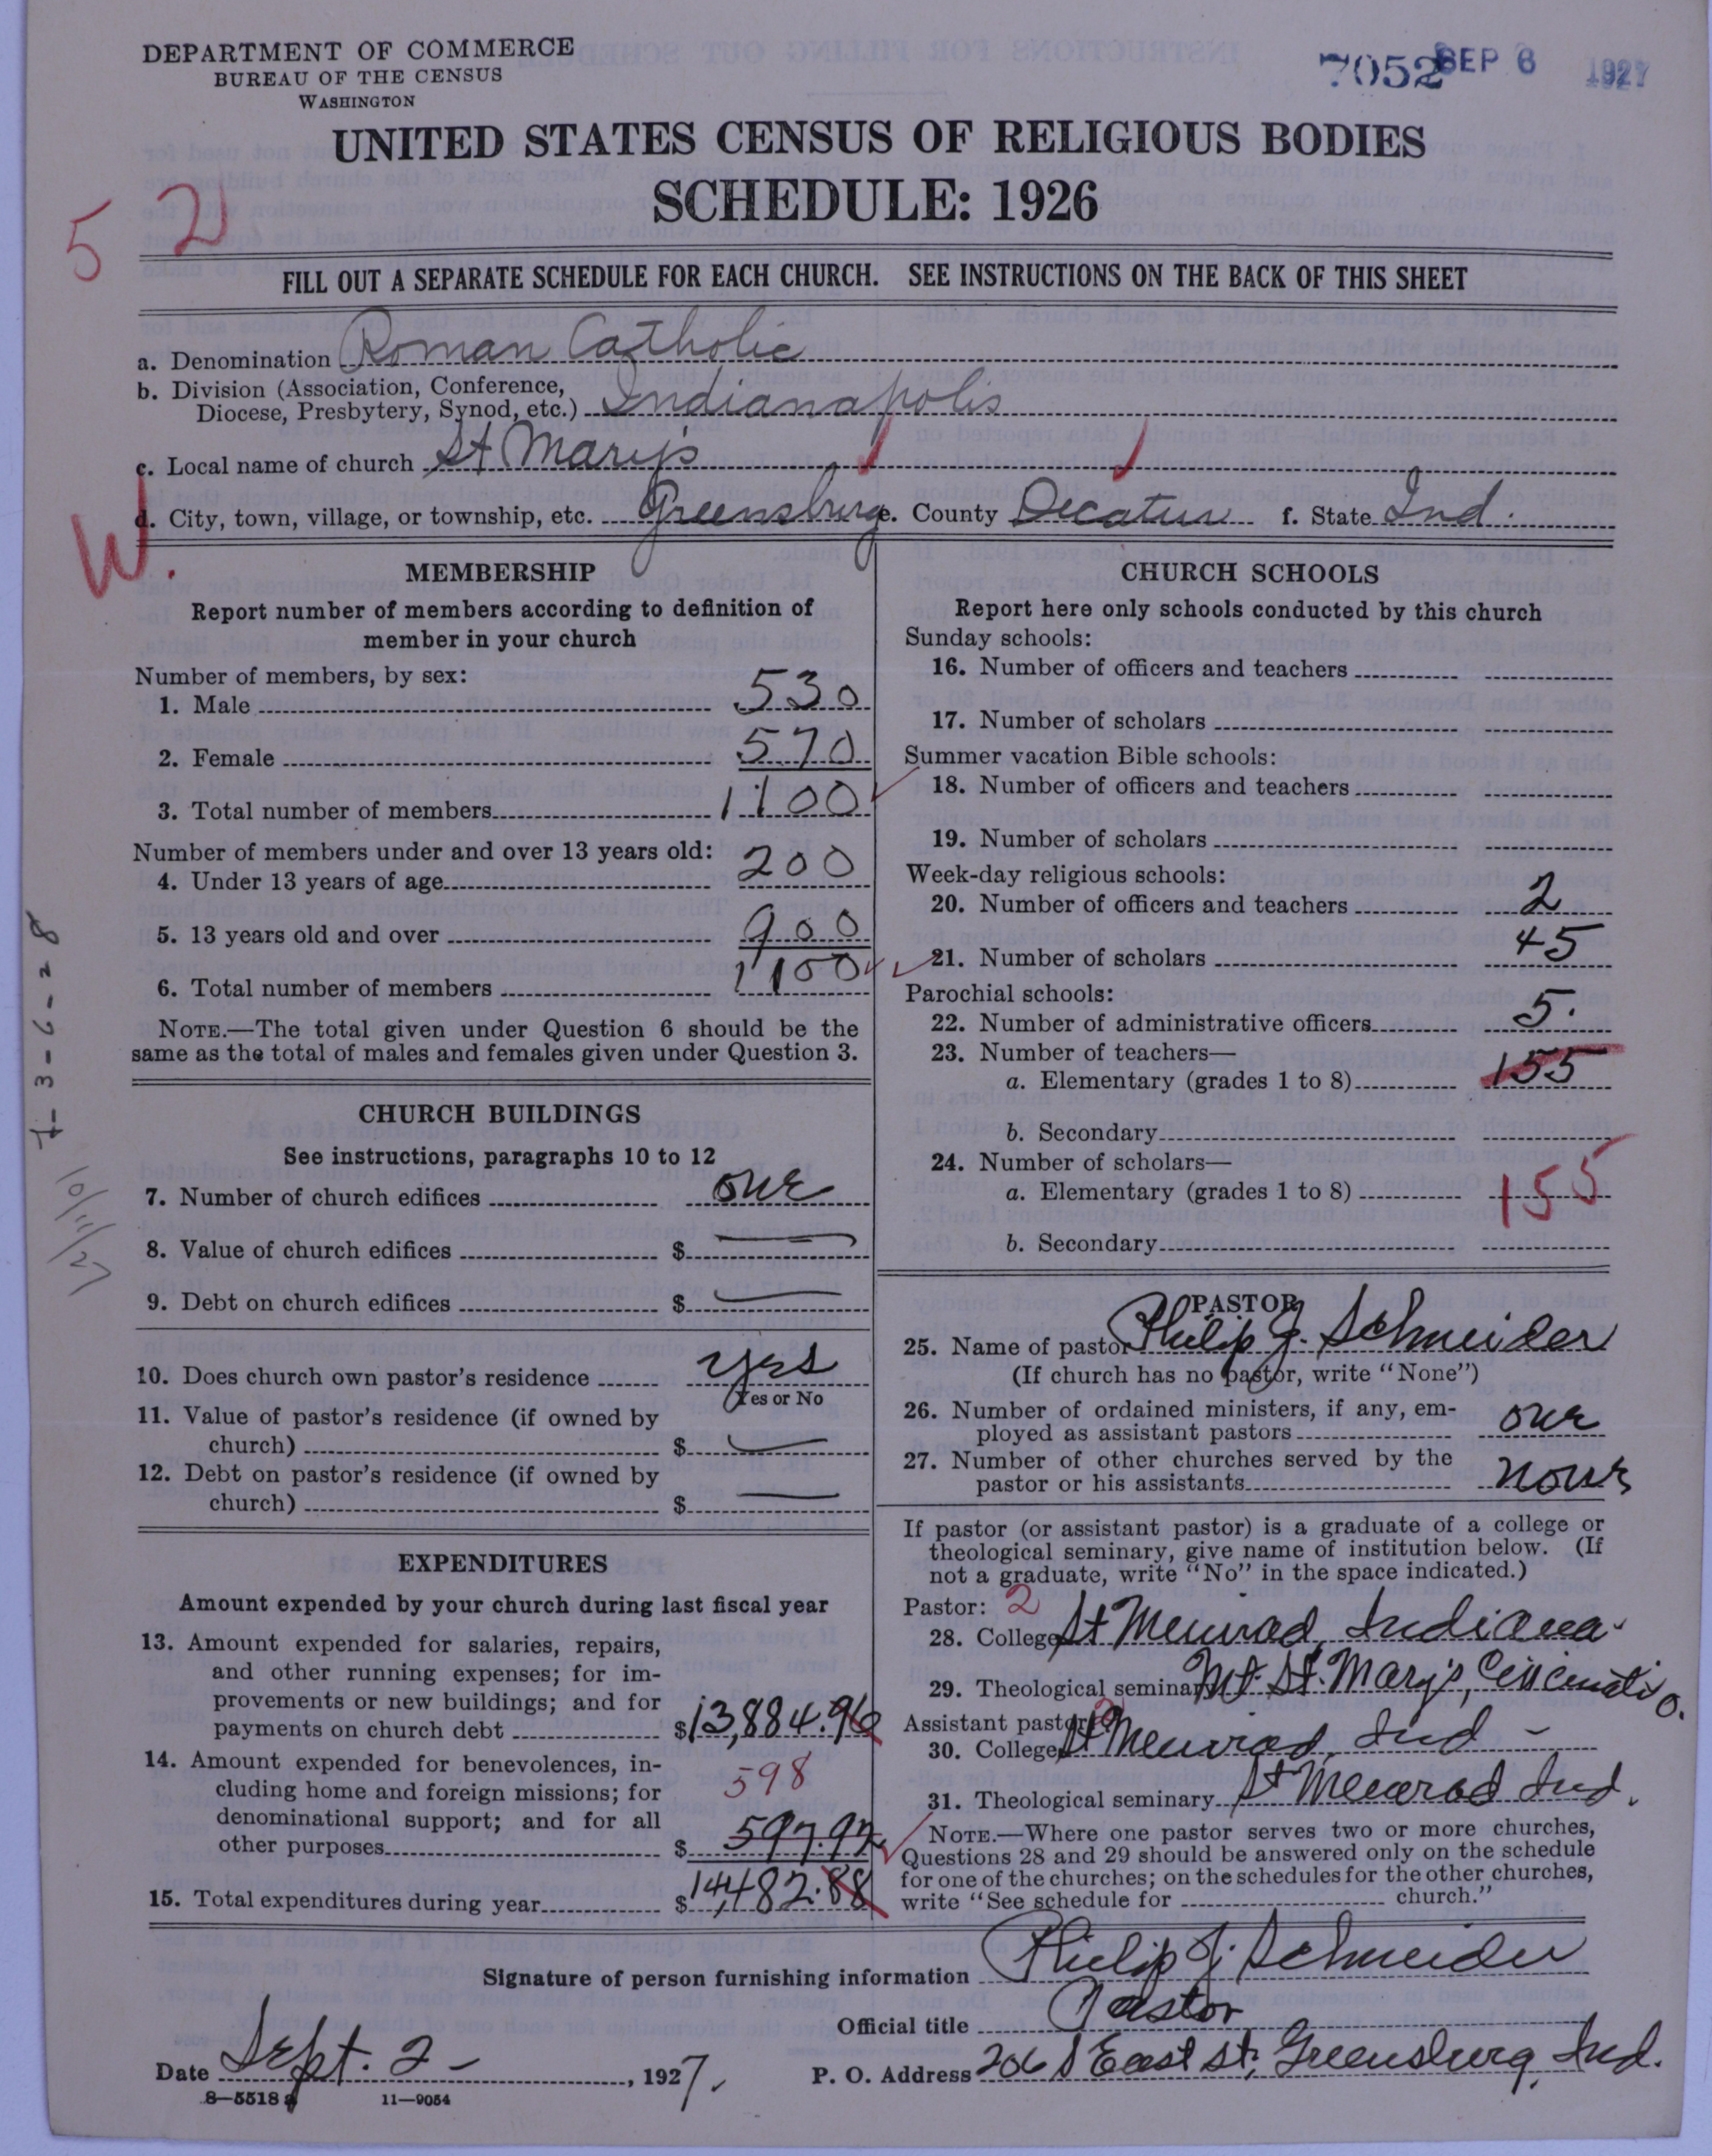 DEPARTMENT OF COMMERCE
BUREAU OF THE CENSUS
WASHINGTON
7052 SEP 6 1927
UNITED STATES CENSUS OF RELIGIOUS BODIES
SCHEDULE: 1926
52
FILL OUT A SEPARATE SCHEDULE FOR EACH CHURCH. SEE INSTRUCTIONS ON THE BACK OF THIS SHEET
a. Denomination Roman Catholic
b. Division (Association, Conference,
Diocese, Presbytery, Synod, etc.) Indianapolis
c. Local name of church St Mary's
W.
d. City, town, village, or township, etc. Greensburg e. County Decatur f. State Ind.
MEMBERSHIP
Report number of members according to definition of
member in your church
Number of members, by sex:
1. Male 530
2. Female 570
3. Total number of members 1100
Number of members under and over 13 years old:
4. Under 13 years of age 200
5. 13 years old and over 900
6. Total number of members 1100
NOTE.—The total given under Question 6 should be the
same as the total of males and females given under Question 3.
7-3-6-28
10/11/27
CHURCH BUILDINGS
See instructions, paragraphs 10 to 12
7. Number of church edifices one
8. Value of church edifices $ —
9. Debt on church edifices $ —
10. Does church own pastor's residence yes
Yes or No
11. Value of pastor's residence (if owned by
church) $ —
12. Debt on pastor's residence (if owned by
church) $ —
EXPENDITURES
Amount expended by your church during last fiscal year
13. Amount expended for salaries, repairs,
and other running expenses; for im-
provements or new buildings; and for
payments on church debt $13,884.96
14. Amount expended for benevolences, in-
cluding home and foreign missions; for 598
denominational support; and for all
other purposes $ 597.92
15. Total expenditures during year $14,482.88
CHURCH SCHOOLS
Report here only schools conducted by this church
Sunday schools:
16. Number of officers and teachers
17. Number of scholars
Summer vacation Bible schools:
18. Number of officers and teachers
19. Number of scholars
Week-day religious schools:
20. Number of officers and teachers 2
21. Number of scholars 45
Parochial schools:
22. Number of administrative officers 5.
23. Number of teachers—
a. Elementary (grades 1 to 8) 155
b. Secondary
24. Number of scholars—
a. Elementary (grades 1 to 8) 155
b. Secondary
PASTOR
25. Name of pastor Philip J. Schneider
(If church has no pastor, write "None")
26. Number of ordained ministers, if any, em-
ployed as assistant pastors one
27. Number of other churches served by the
pastor or his assistants none
If pastor (or assistant pastor) is a graduate of a college or
theological seminary, give name of institution below. (If
not a graduate, write "No" in the space indicated.)
Pastor: 2
28. College St Meinrad, Indiana
29. Theological seminary Mt. St. Mary's, Cincinnati O.
Assistant pastor: 2
30. College St Meinrad, Ind —
31. Theological seminary St Meinrad Ind.
NOTE.—Where one pastor serves two or more churches,
Questions 28 and 29 should be answered only on the schedule
for one of the churches; on the schedules for the other churches,
write "See schedule for church."
Signature of person furnishing information Philip J. Schneider
Official title Pastor
Date Sept. 2 - , 1927. P. O. Address 206 S East st, Greensburg, Ind.
8—5518a 11—9054